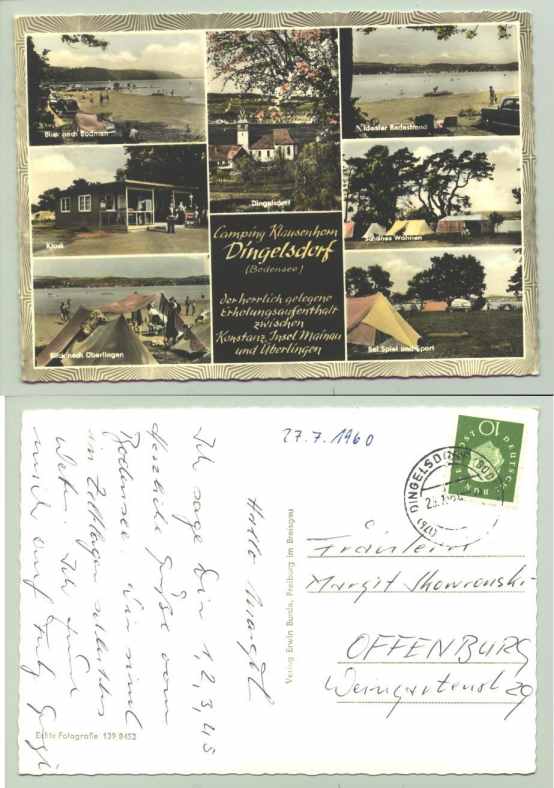 Blick nach Bodman
Dingelsdorf
Idealer Badestrand
Kiosk
Schönes Wohnen
Blick nach Überlingen
Bei Spiel und Sport
Camping Klausenhorn
Dingelsdorf
(Bodensee)
der herrlich gelegene
Erholungsaufenthalt
zwischen
Konstanz, Insel Mainau
und Überlingen
27.7.1960
Hallo Margit
Ich sage Dir 1, 2, 3, 4, 5
Herzliche Grüße vom
Bodensee. Wir sind
im Zeltlager
Ich
mich auf
Echte Fotografie 139 8453
Verlag Erwin Burda, Freiburg im Breisgau
DEUTSCHE BUNDESPOST
10
DINGELSDORF
Fräulein
Margit Skowronski
OFFENBURG
Weingartenstr 29